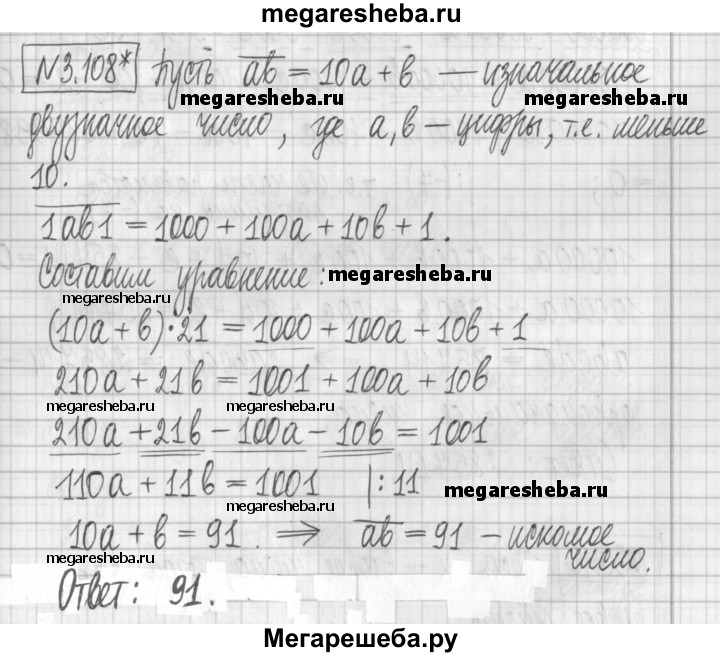 megaresheba.ru
N3.108* Пусть ab = 10a + b — изначальное
megaresheba.ru megaresheba.ru
двузначное число, где a, b — цифры, т.е. меньше
10.
1ab1 = 1000 + 100a + 10b + 1.
Составим уравнение: megaresheba.ru
megaresheba.ru
(10a + b)·21 = 1000 + 100a + 10b + 1
210a + 21b = 1001 + 100a + 10b
megaresheba.ru megaresheba.ru
210a + 21b - 100a - 10b = 1001
110a + 11b = 1001 |: 11 megaresheba.ru
megaresheba.ru
10a + b = 91. ⇒ ab = 91 — искомое
megaresheba.ru
число.
Ответ: 91.
Мегарешеба.ру